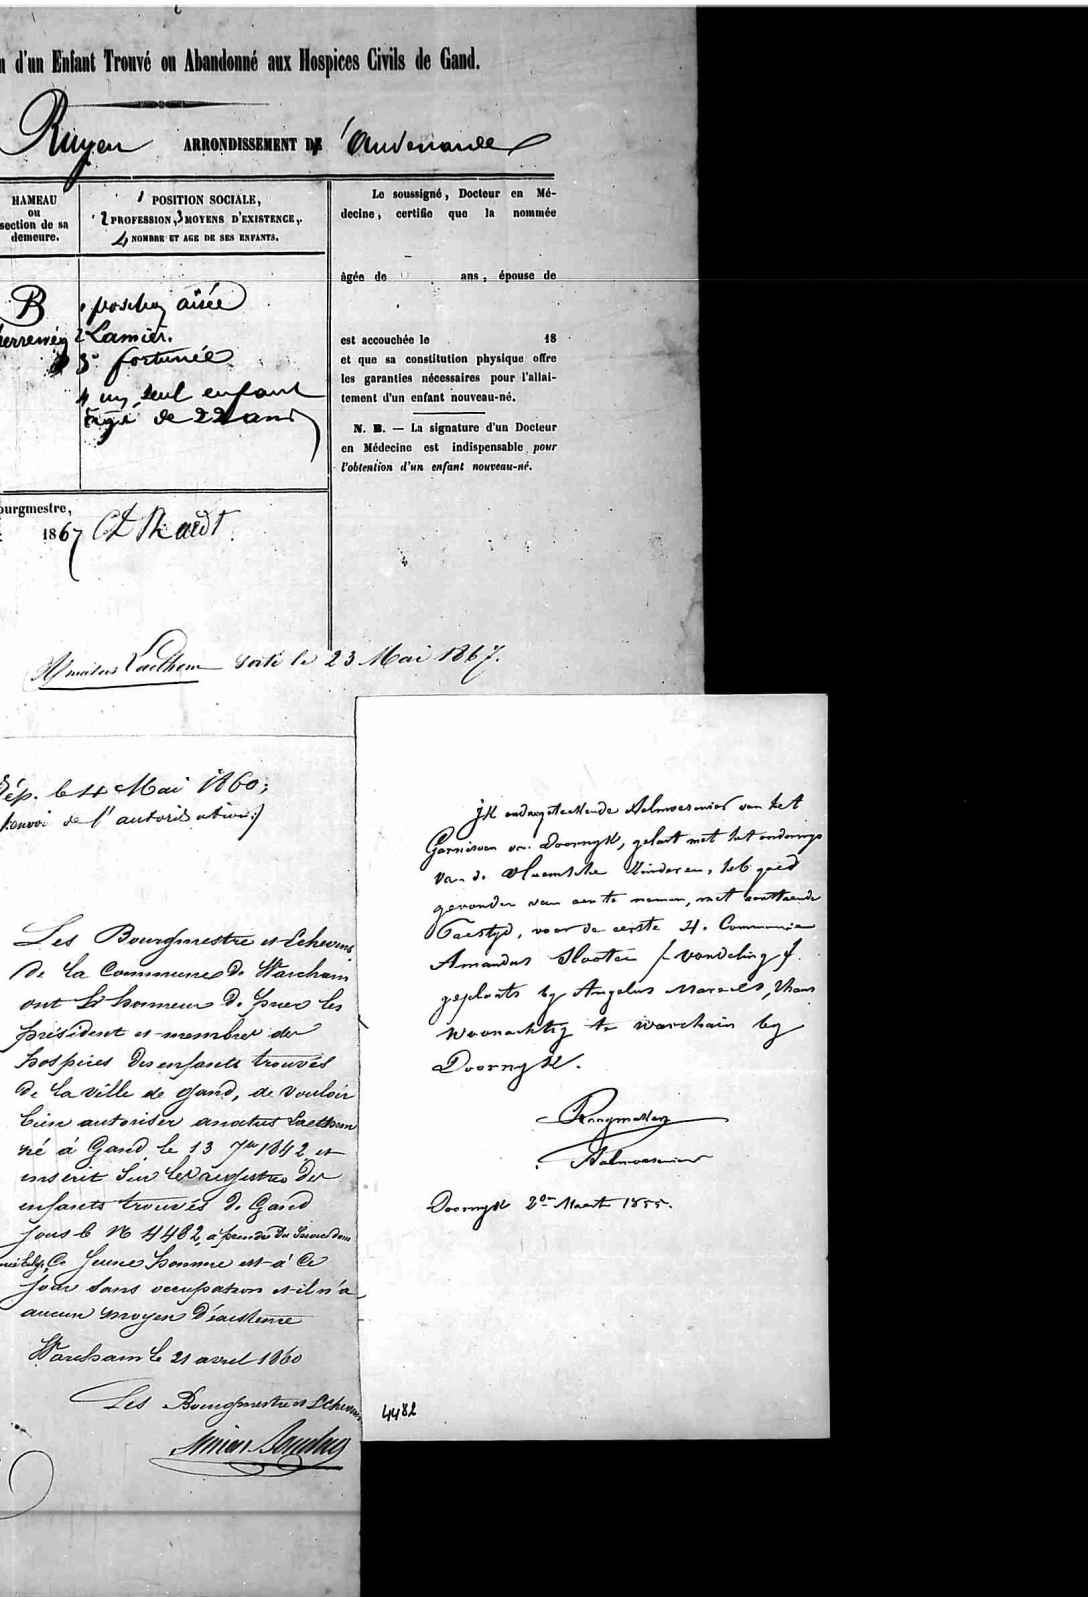 d'un Enfant Trouvé ou Abandonné aux Hospices Civils de Gand.
Ruyen ARRONDISSEMENT D' Audenarde
HAMEAU
ou
section de sa
demeure.
1 POSITION SOCIALE,
2 PROFESSION, 3 MOYENS D'EXISTENCE,
4 NOMBRE ET AGE DE SES ENFANTS.
B
1 aisée
2
3° fortunée
4 un seul enfant
agé de 22 ans
Le soussigné, Docteur en Mé-
decine, certifie que la nommée
âgée de ans, épouse de
est accouchée le 18
et que sa constitution physique offre
les garanties nécessaires pour l'allai-
tement d'un enfant nouveau-né.
N. B. — La signature d'un Docteur
en Médecine est indispensable pour
l'obtention d'un enfant nouveau-né.
ourgmestre,
1867
Amatus Laethem sorti le 23 Mai 1867.
Rép. le 4 Mai 1860;
(envoi de l'autorisation.)
Les Bourgmestre et Echevins
de la Commune de Warchain
ont l'honneur de prier les
président et membres des
hospices des enfants trouvés
de la ville de gand, de vouloir
bien autoriser amatus Laethem
né à Gand le 13 7bre 1842 et
inscrit sur les registres des
enfants trouvés de Gand
sous le N° 4482, à prendre du Service dans
Ce jeune homme est à ce
jour sans occupation et il n'a
aucun moyen d'existence
Warchain le 21 avril 1860
Les Bourgmestre et Echevins
Ik ondergeteekende Aelmoesenier van het
Garnisoen van Doornyk, gelast met het onderwys
van de vlaemsche kinderen, heb goed
gevonden van aen te nemen, met aenstaende
Paestyd, voor de eerste H. Communie
Amandus Slooten (vondeling).
geplaats by Angelus thans
woonachtig te warchain by
Doornyk.
Aelmoesenier
Doornyk 2den Maart 1855.
4482